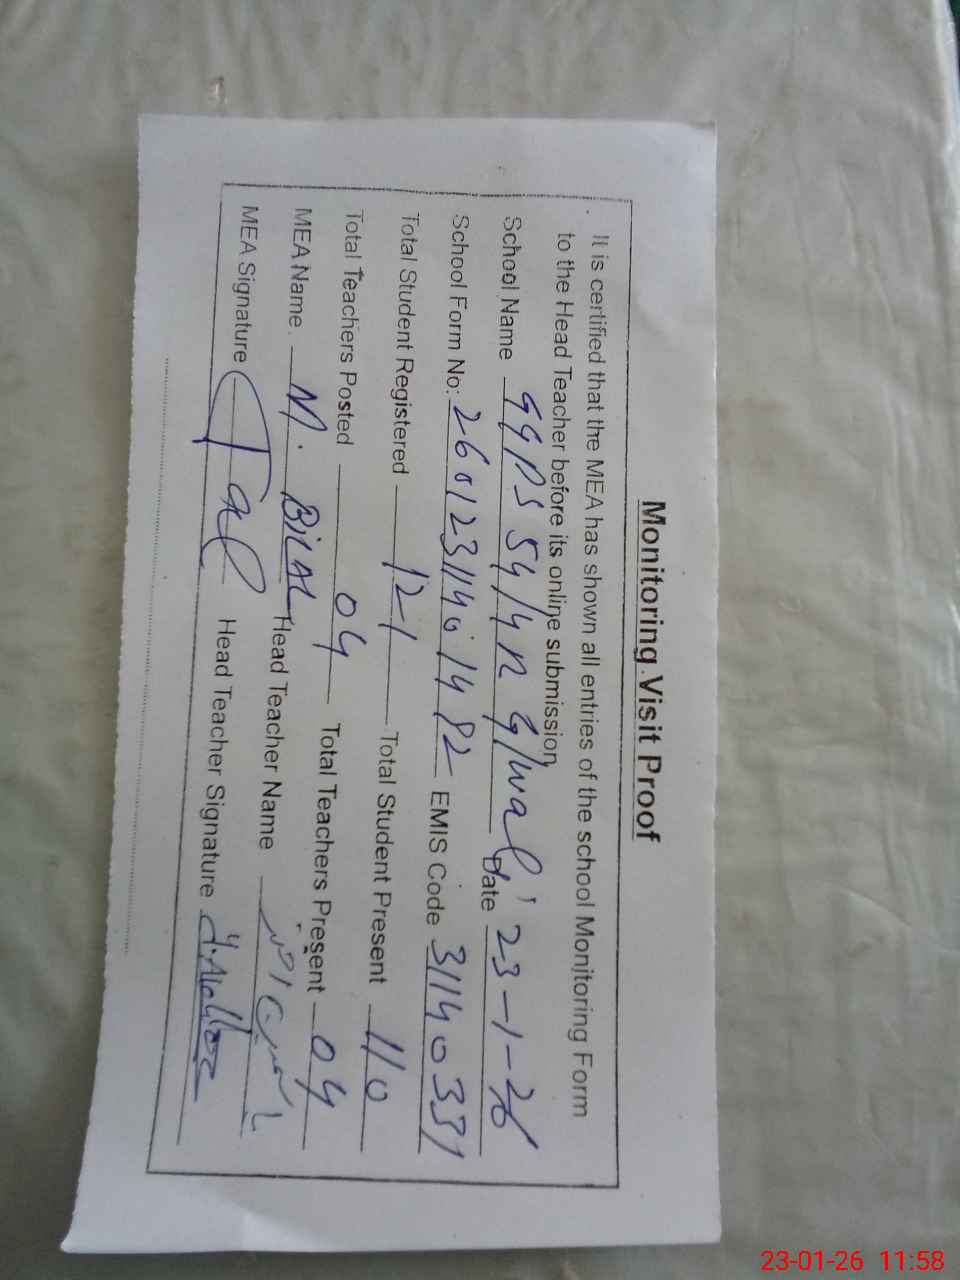 Monitoring Visit Proof
It is certified that the MEA has shown all entries of the school Monitoring Form
to the Head Teacher before its online submission
School Name GGPS 54/4R H/Wal Date 23-1-26
School Form No: 26012311401482 EMIS Code 31140331
Total Student Registered 121 Total Student Present 110
Total Teachers Posted 04 Total Teachers Present 04
MEA Name. M. BiLAL Head Teacher Name
MEA Signature Head Teacher Signature
23-01-26 11:58